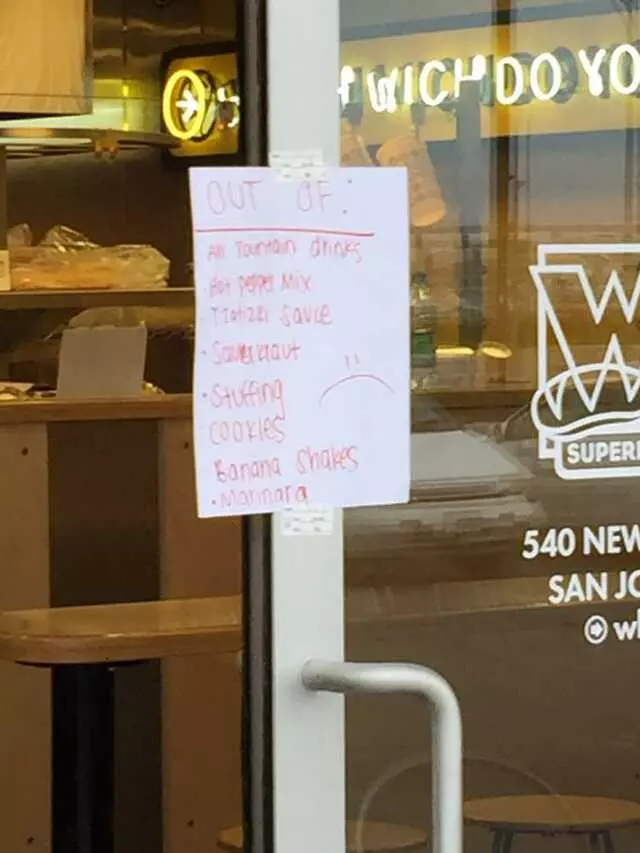 WICH DO YO
OUT OF:
All Fountain drinks
Hot pepper Mix
Tzatziki Sauce
• Sauerkraut
• Stuffing
COOKIES
Banana Shakes
• Marinara
W
W
SUPERI
540 NEW
SAN JO